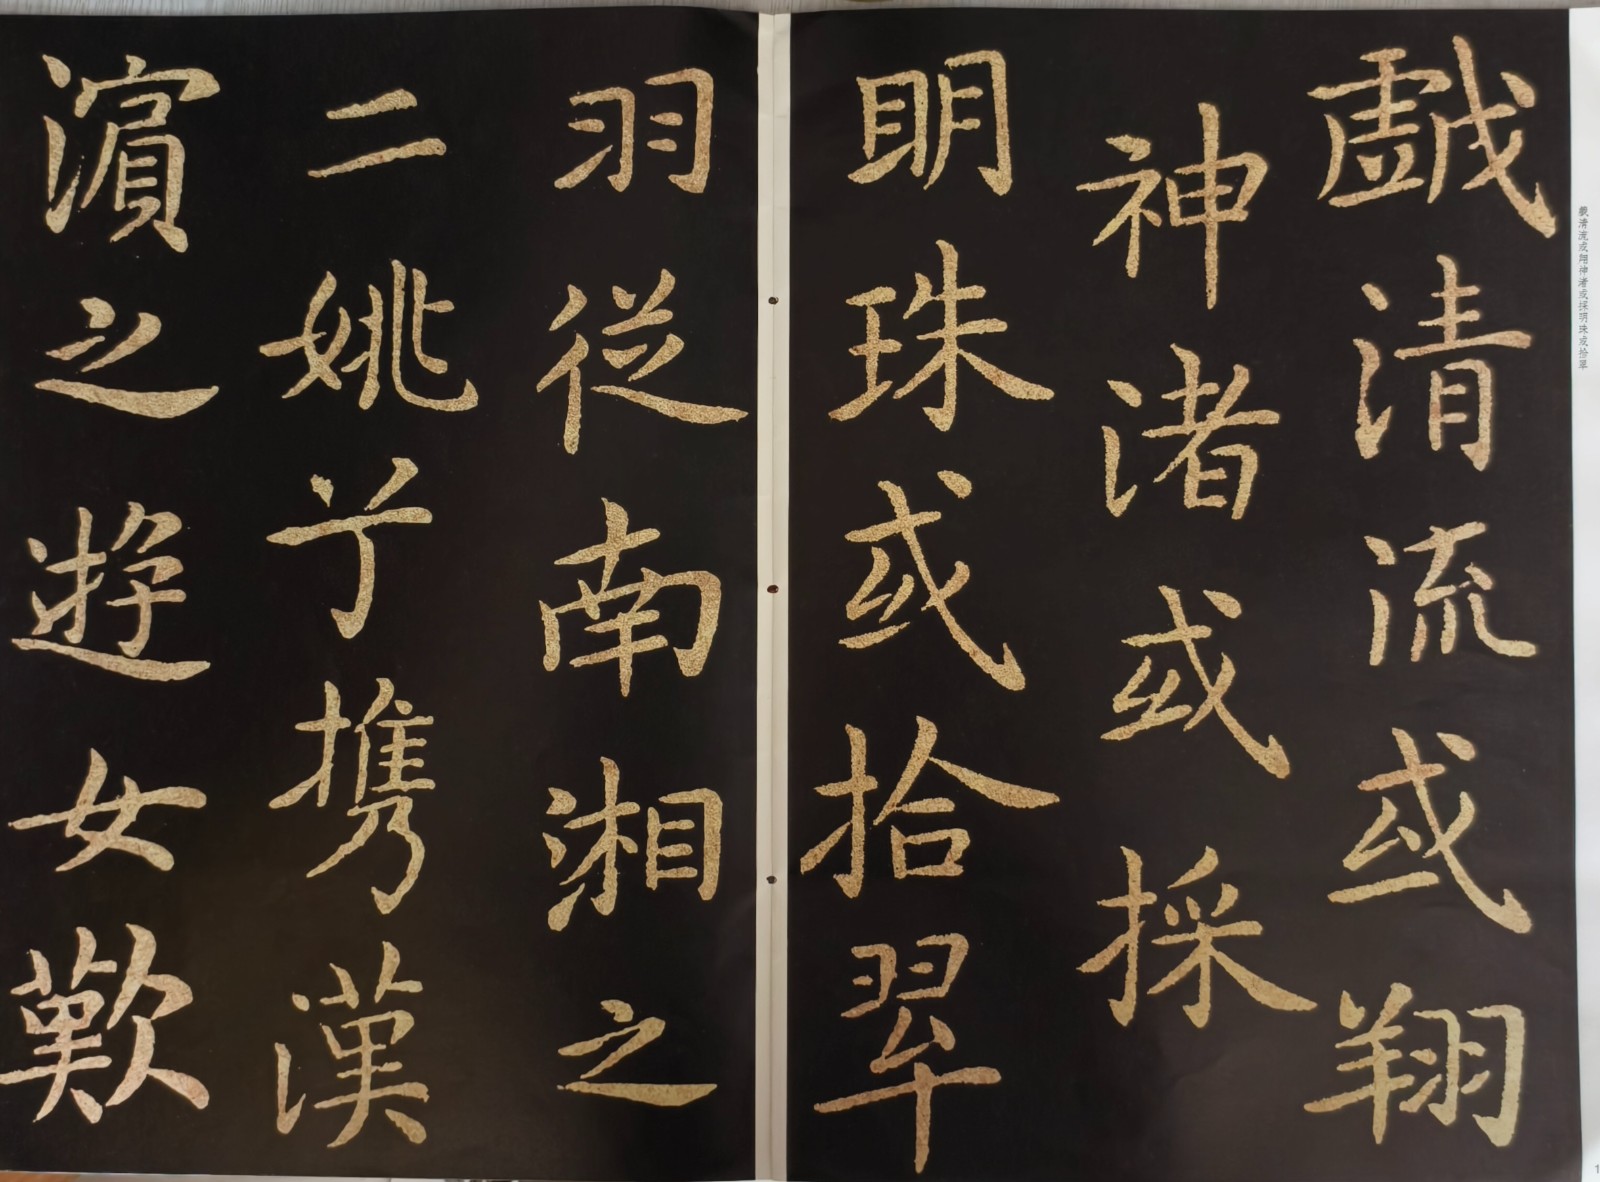 戲清流或翔
神渚或採
明珠或拾翠
羽從南湘之
二姚兮携漢
濱之遊女歎
戲清流或翔神渚或採明珠或拾翠